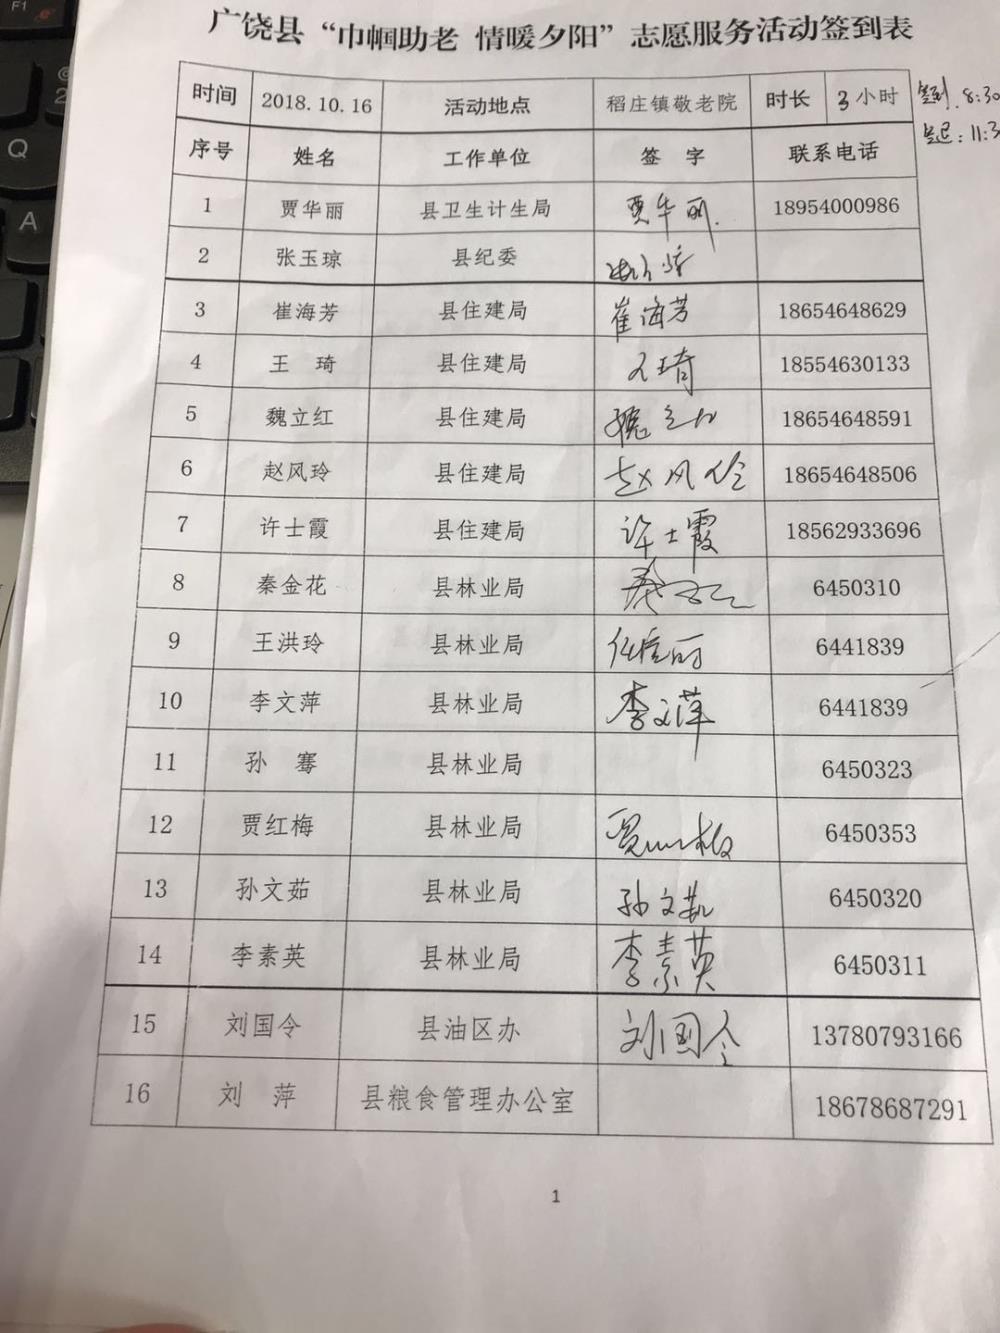 广饶县“巾帼助老 情暖夕阳”志愿服务活动签到表
时间 2018.10.16 活动地点 稻庄镇敬老院 时长 3小时 签到.8:30
签退:11:3
序号 姓名 工作单位 签 字 联系电话
1 贾华丽 县卫生计生局 贾华丽. 18954000986
2 张玉琼 县纪委
3 崔海芳 县住建局 崔海芳 18654648629
4 王 琦 县住建局 王琦 18554630133
5 魏立红 县住建局 魏立红 18654648591
6 赵风玲 县住建局 赵风玲 18654648506
7 许士霞 县住建局 许士霞 18562933696
8 秦金花 县林业局 6450310
9 王洪玲 县林业局 6441839
10 李文萍 县林业局 李文萍 6441839
11 孙 骞 县林业局 6450323
12 贾红梅 县林业局 贾红梅 6450353
13 孙文茹 县林业局 孙文茹 6450320
14 李素英 县林业局 李素英 6450311
15 刘国令 县油区办 刘国令 13780793166
16 刘 萍 县粮食管理办公室 18678687291
1
F1
2
Q
A